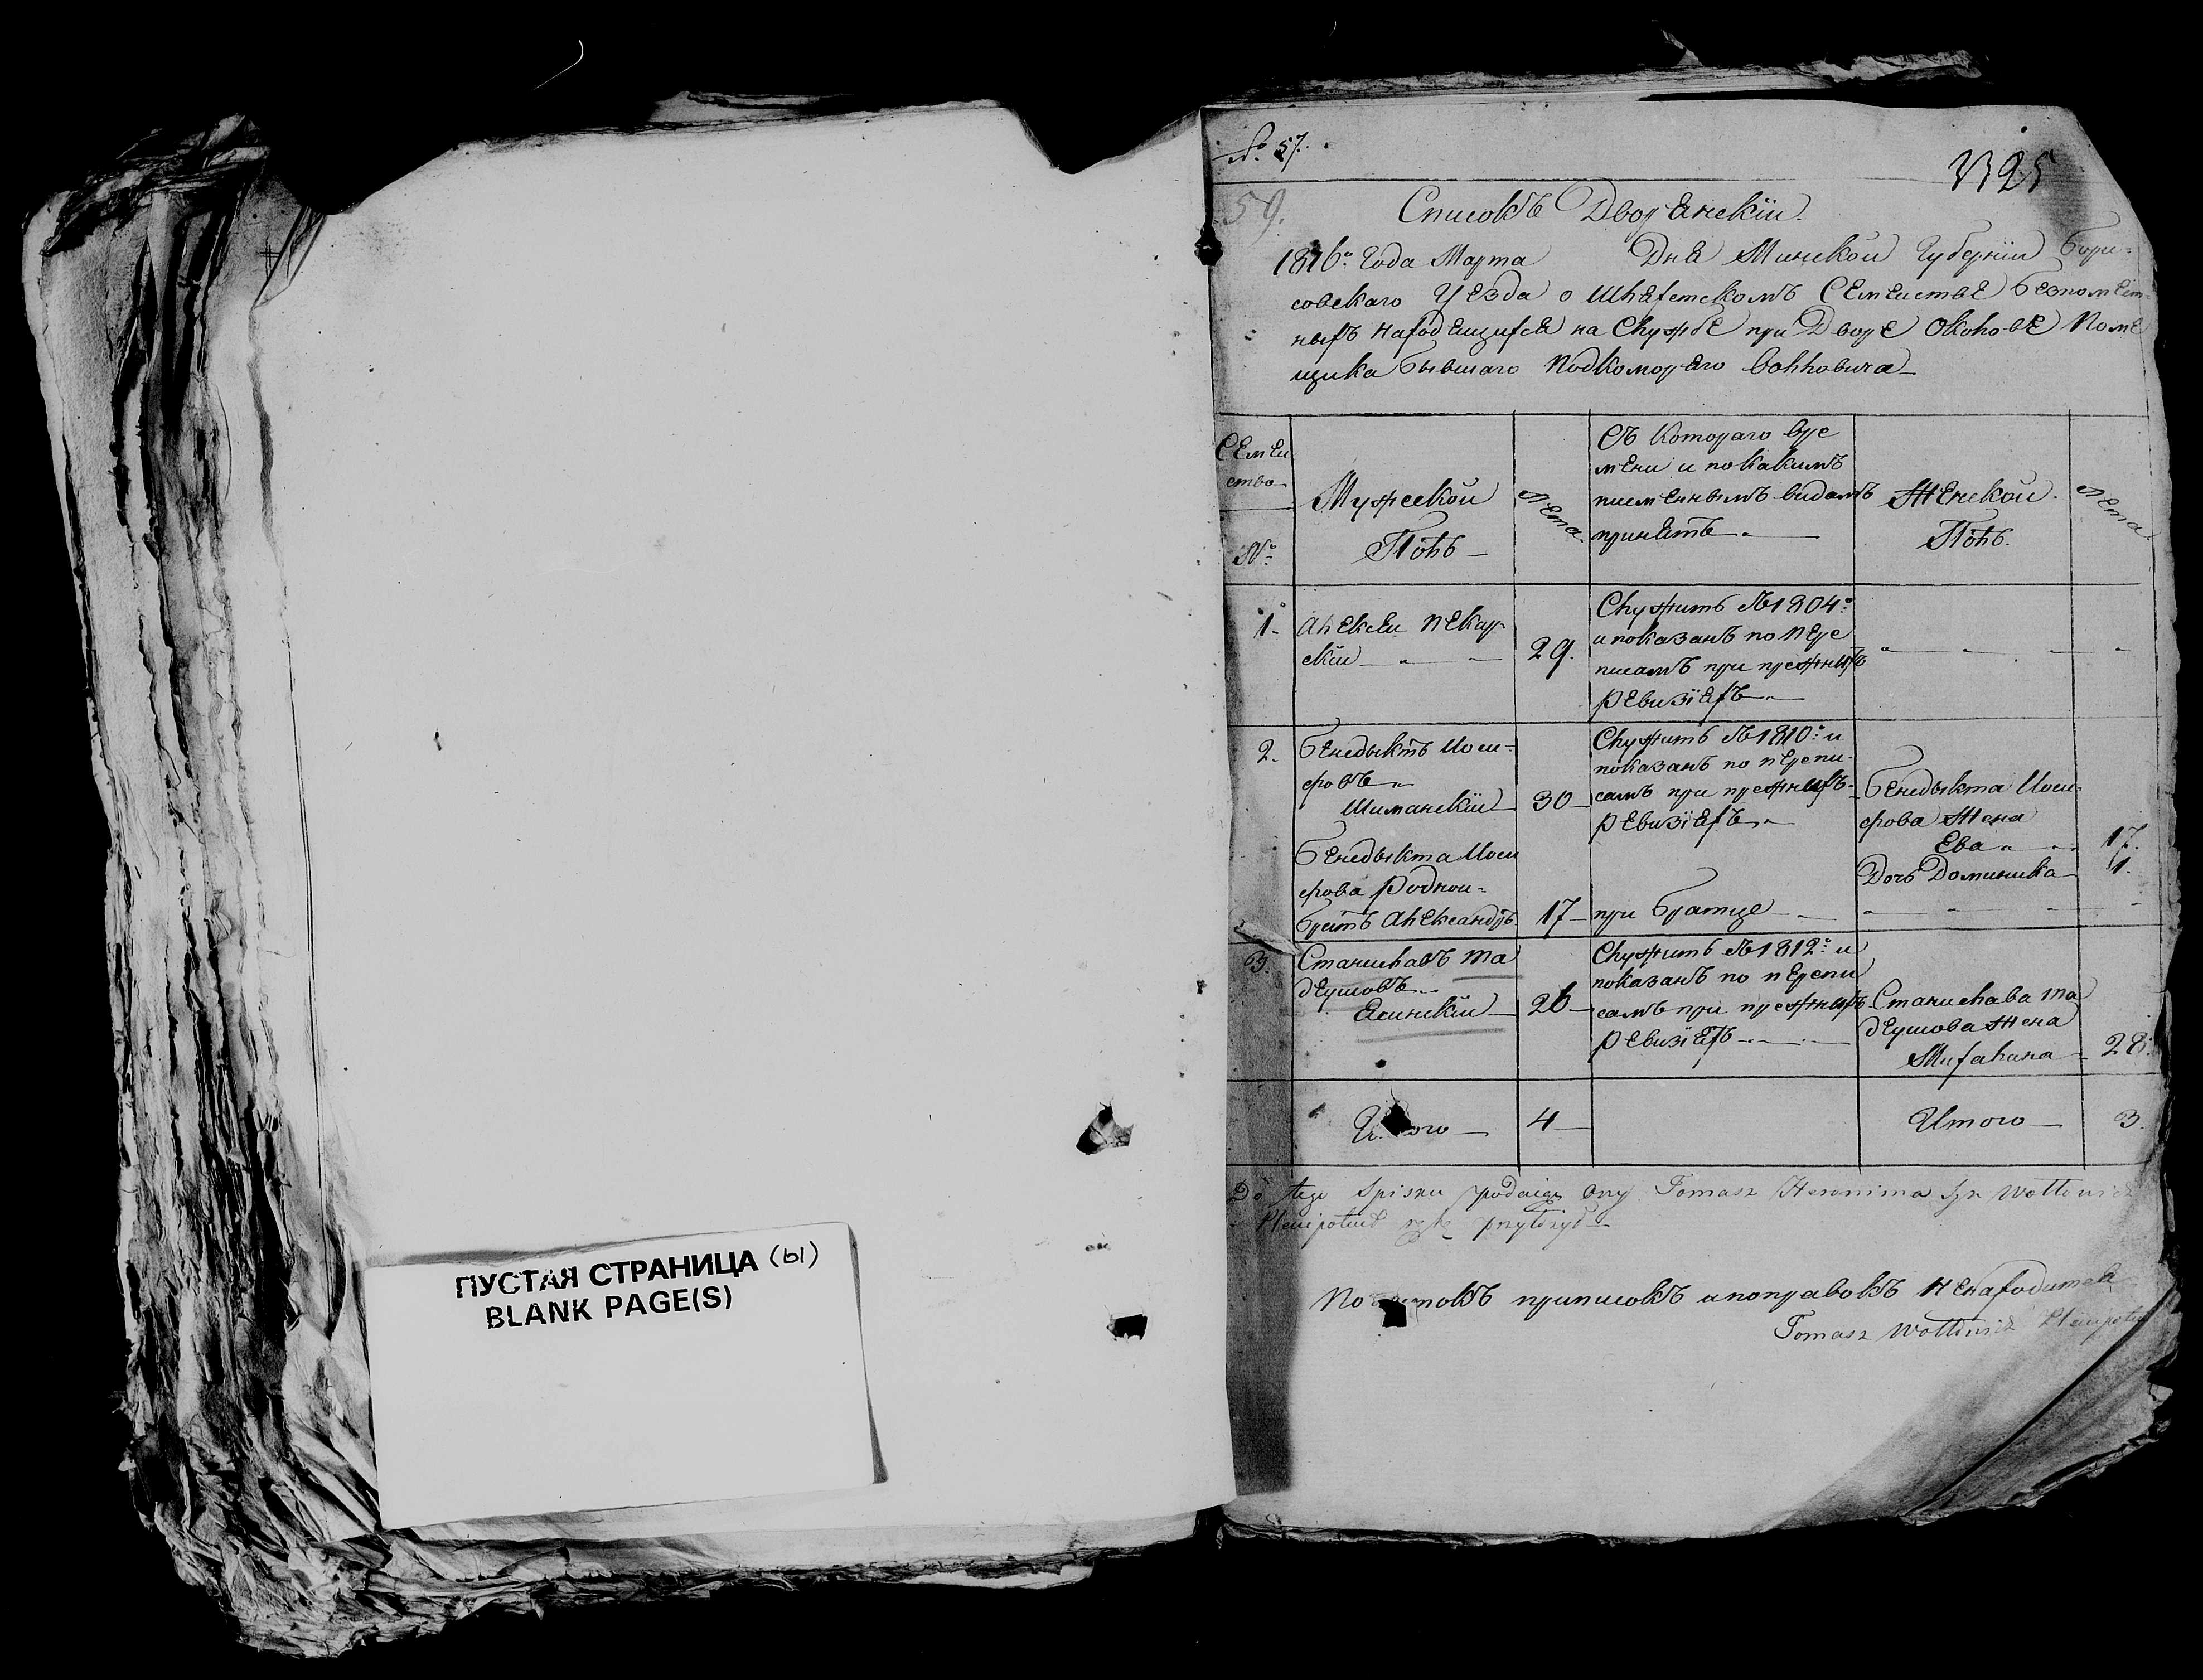 ПУСТАЯ СТРАНИЦА (ы)
BLANK PAGE(S)
№ 57.
59.
Списокъ Дворянскій.
1816го Года Марта Дня Минской Губерніи Бори-
совскаго Уезда о Шляхетскомъ Семействе безпомест-
ныхъ находящихся на Службе при Дворе Околове Поме
щика бывшаго Подкоморяго Воллович­а
Семей
ство
№
Мужеской
Полъ
Лета
Съ Котораго вре
мени и по какимъ
писменнымъ видамъ
принятъ
Женской
Полъ.
Лета
1.
Алексей Пекар-
скій
29.
Служитъ съ 1804го
и показанъ по пере
писамъ при прежнихъ
ревизіяхъ
2.
Бенедыктъ Иоси-
фовъ
Шиманскій
30
Служитъ съ 1810го и
показанъ по перепи-
самъ при прежнихъ
ревизіяхъ
Бенедыкта Иоси-
фова Жена
Ева
17.
Дочь Доминика
1.
Бенедыкта Иоси
фова родной
братъ Александръ
17
при братце
3.
Станиславъ Та
деушовъ
Ясинскій
26
Служитъ съ 1812го и
показанъ по перепи
самъ при прежнихъ
ревизіяхъ
Станислава Та
деушова Жена
Михалина
28.
4
Итого
3.
Do tego Spisku podaiąc ony Tomasz Heronima Syn Wołłowicz
Plenipotent rękę
приписокъ и поправокъ ненаходится
Tomasz Wołłowicz Plenipotent